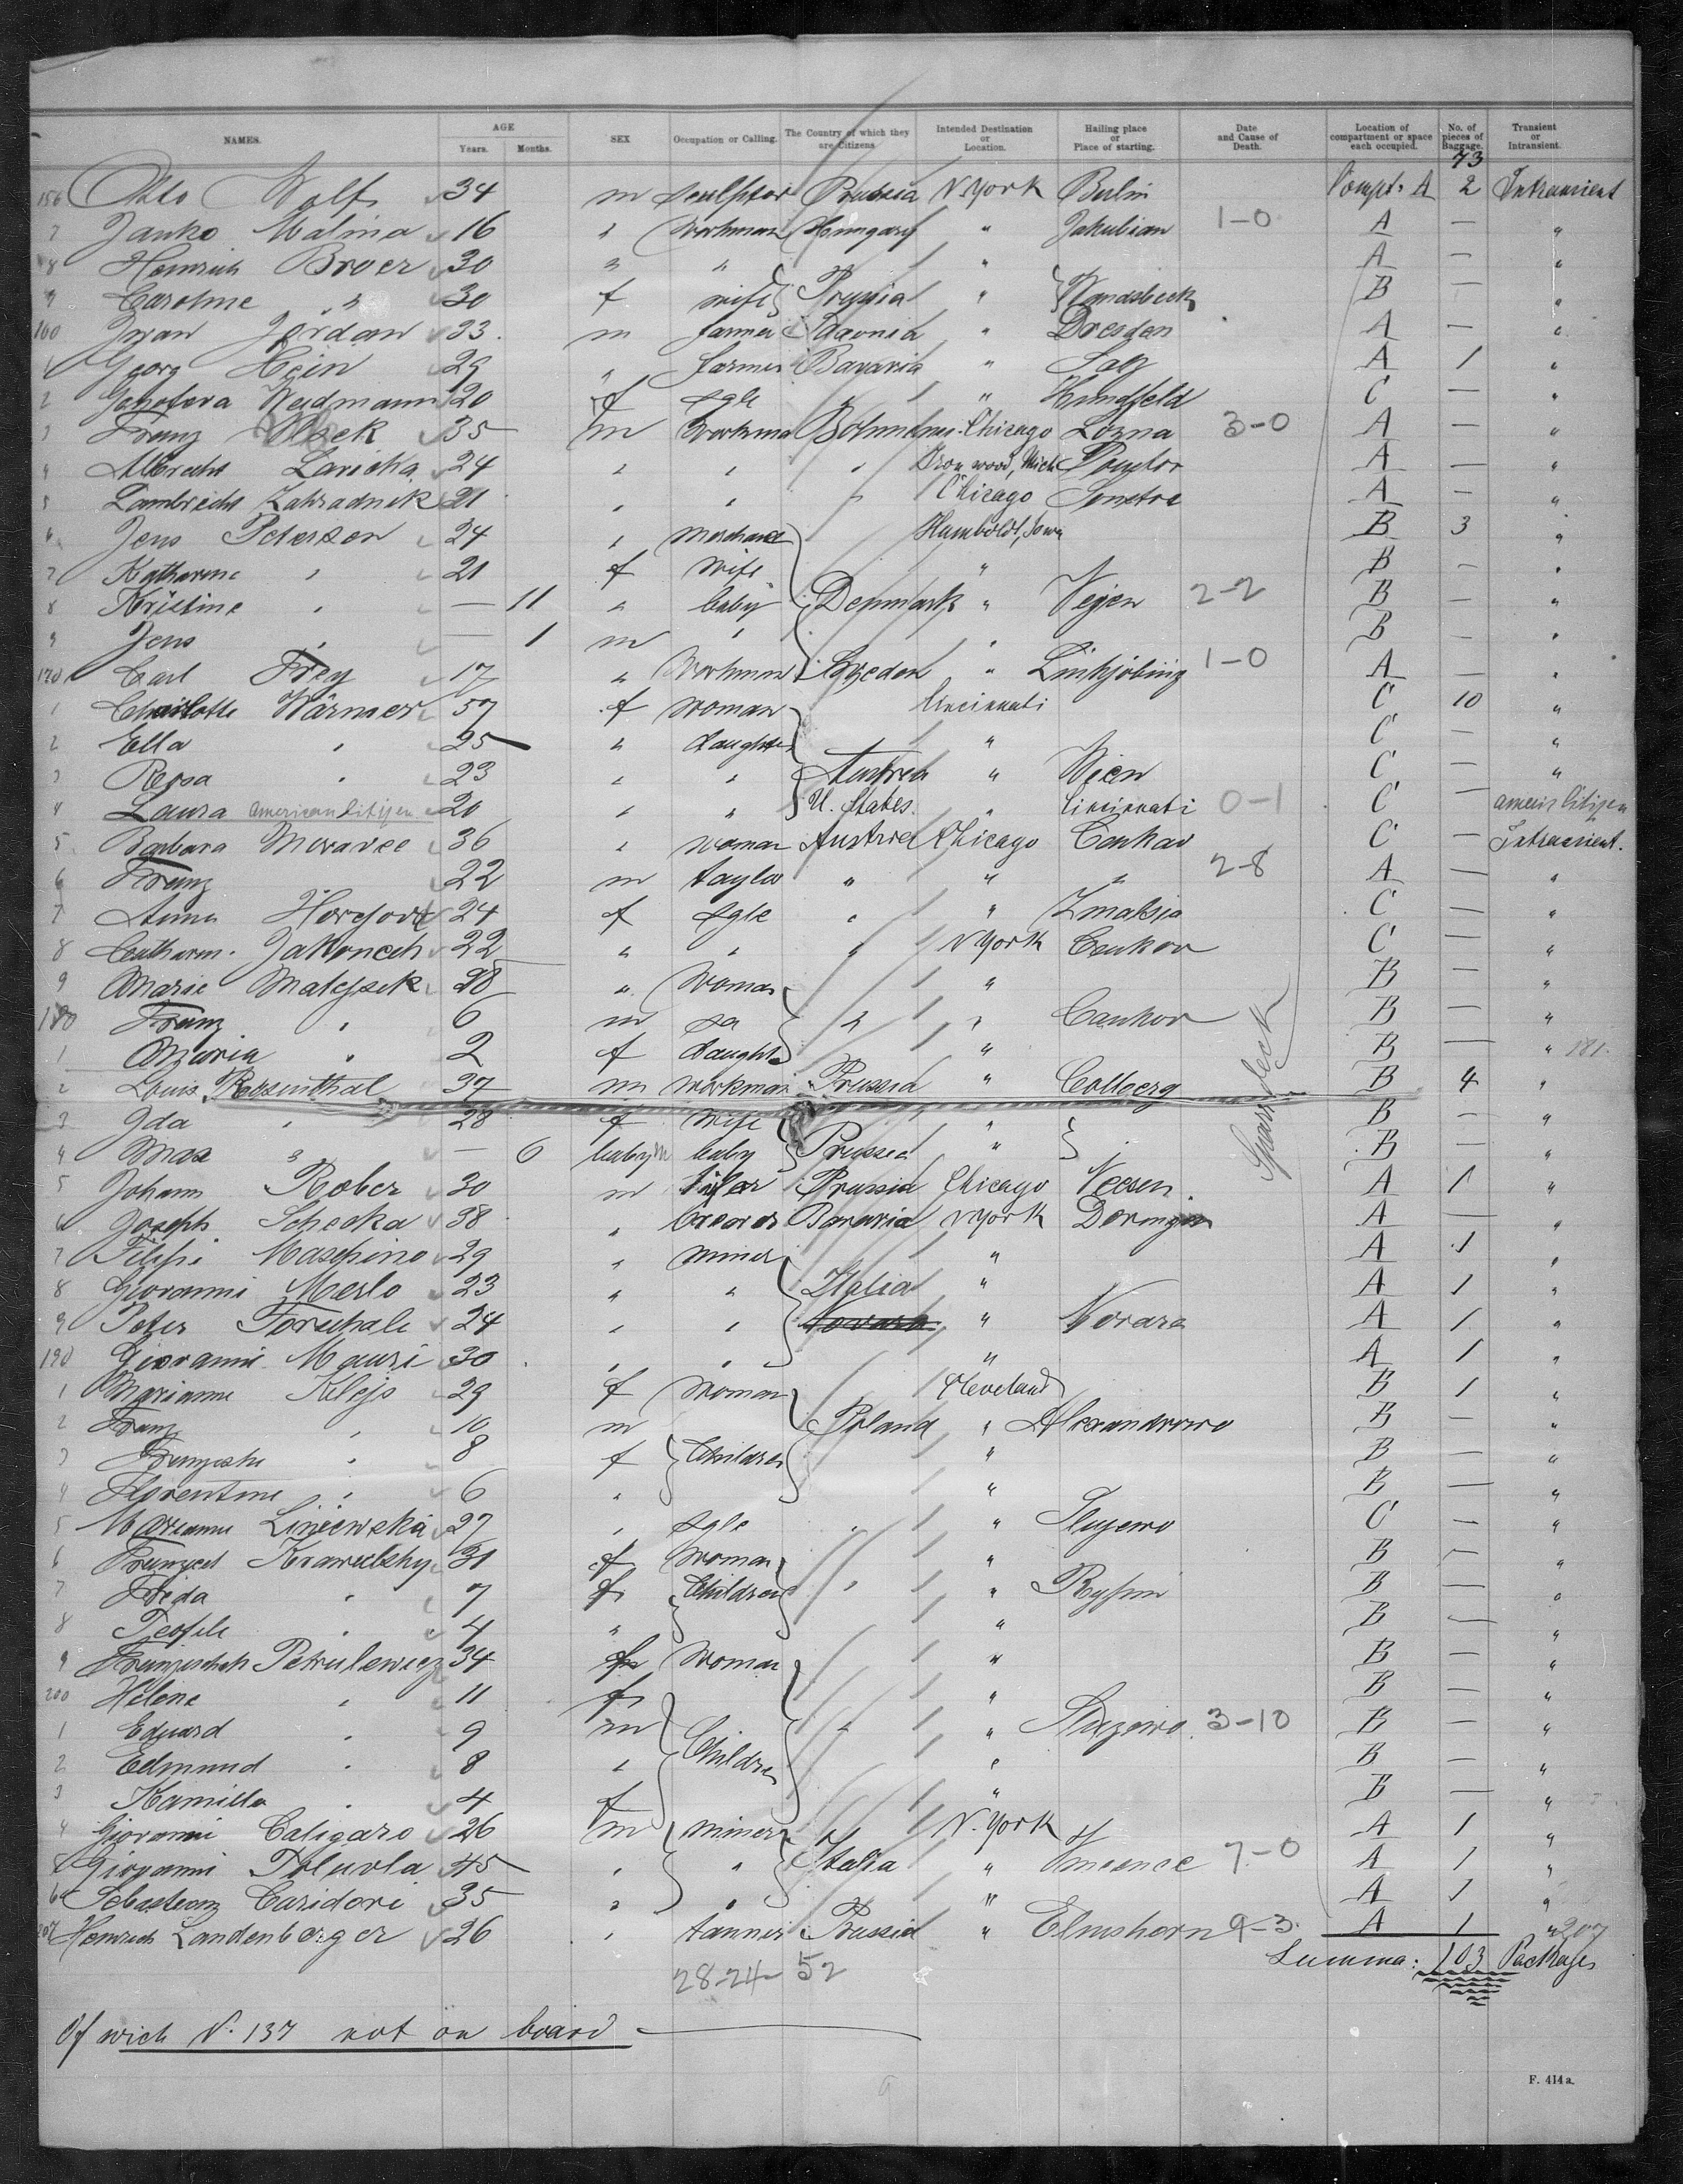 NAMES. AGE Years. Months. SEX Occupation or Calling. The Country of which they are Citizens Intended Destination or Location. Hailing place or Place of starting. Date and Cause of Death. Location of compartment or space each occupied. No. of pieces of Baggage. Transient or Intransient.
73
156 Otto Wolf 34 m sculptor Prussia N. York Berlin Compt. A 2 Intransient
7 Janko Malina 16 " workman Hungary " Jakubian 1-0 A — "
8 Heinrich Broer 30 " " " A — "
9 Caroline " 30 f wife Prussia " Wandsbeck B — "
160 Iwan Jordan 33 m farmer Saxonia " Dresden A — "
1 Georg Hein 29 " farmer Bavaria " Salz A 1 "
2 Genofeva Weidmann 20 f sgle " " Hundfeld C — "
3 Franz 35 m workma Chicago Lozna 3-0 A — "
4 Albrecht Lavicka 24 " " " Ironwood, Mich A — "
5 Lambrecht Zahradnick 21 " " " Chicago A — "
6 Jens Petersen 24 " Humboldt, Iowa B 3 "
7 Katharine " 21 f wife " B — "
8 Kristine " — 11 " baby Denmark " Vejen 2-2 B — "
9 Jens " — 1 m " " B — "
170 Carl Frey 17 " workman Sweden " Linkjöbing 1-0 A — "
1 Charlotte Wärmer 57 f woman Cincinnati C 10 "
2 Ella " 25 " daughter " C — "
3 Rosa " 23 " " Austria " Wien C — "
4 Laura American Citizen 20 " " U. States. " Cincinnati 0-1 C — americ Citizen
5 Barbara Moravec 36 " woman Austria Chicago Caukov C — Intransient.
6 Franz 22 m taylor " " " 2-8 A — "
7 Anna 24 f sgle " " C — "
8 Catharin. 22 " " " N York Caukov C — "
9 Marie Matejsek 28 " woman " B — "
180 Franz " 6 m " " Caukov B — "
1 Maria " 2 f daught " B — " 181.
2 Louis Rosenthal 37 m workman Prussia " Colberg B 4 "
3 Ida " 28 f wife " B — "
4 Max " — 6 baby m baby Prussia " B — "
5 Johann Rober 30 m Prussia Chicago A 1 "
6 Joseph Schecka 38 " Bavaria N York A — "
7 Filipi Maschino 29 " miner " A 1 "
8 Giovanni Merlo 23 " " Italia " A 1 "
9 Peter Forschale 24 " " Novara " Novara A 1 "
190 Giovanni Mauri 30 " " " A 1 "
1 Marianne Klejs 29 f woman Cleveland B 1 "
2 Franz " 10 m Poland " Alexandrowo B — "
3 " 8 f Children " B — "
4 Florentine " 6 " " B — "
5 Marianne Liniewska 27 " sgle " " C — "
6 31 f woman " B — "
7 Frieda " 7 f Children " " Ryppin B — "
8 Teofile " 4 " " B — "
9 Petrulewicz 34 f woman " B — "
200 Helene " 11 f " B — "
1 Eduard " 9 m Childre " " 3-10 B — "
2 Edmund " 8 " " B — "
3 Kamilla " 4 f " B — "
4 Giovanni Caligaro 26 m miner N. York A 1 "
5 Giovanni 45 " " Italia " 7-0 A 1 "
6 Casidori 35 " " " A 1 "
207 Heinrich Landenberger 26 " tanner Prussia " Elmshorn 9-3. A 1 " 207
Summa: 103 Packages
28-24- 52
Of wich N. 137 not on board
F. 414 a.